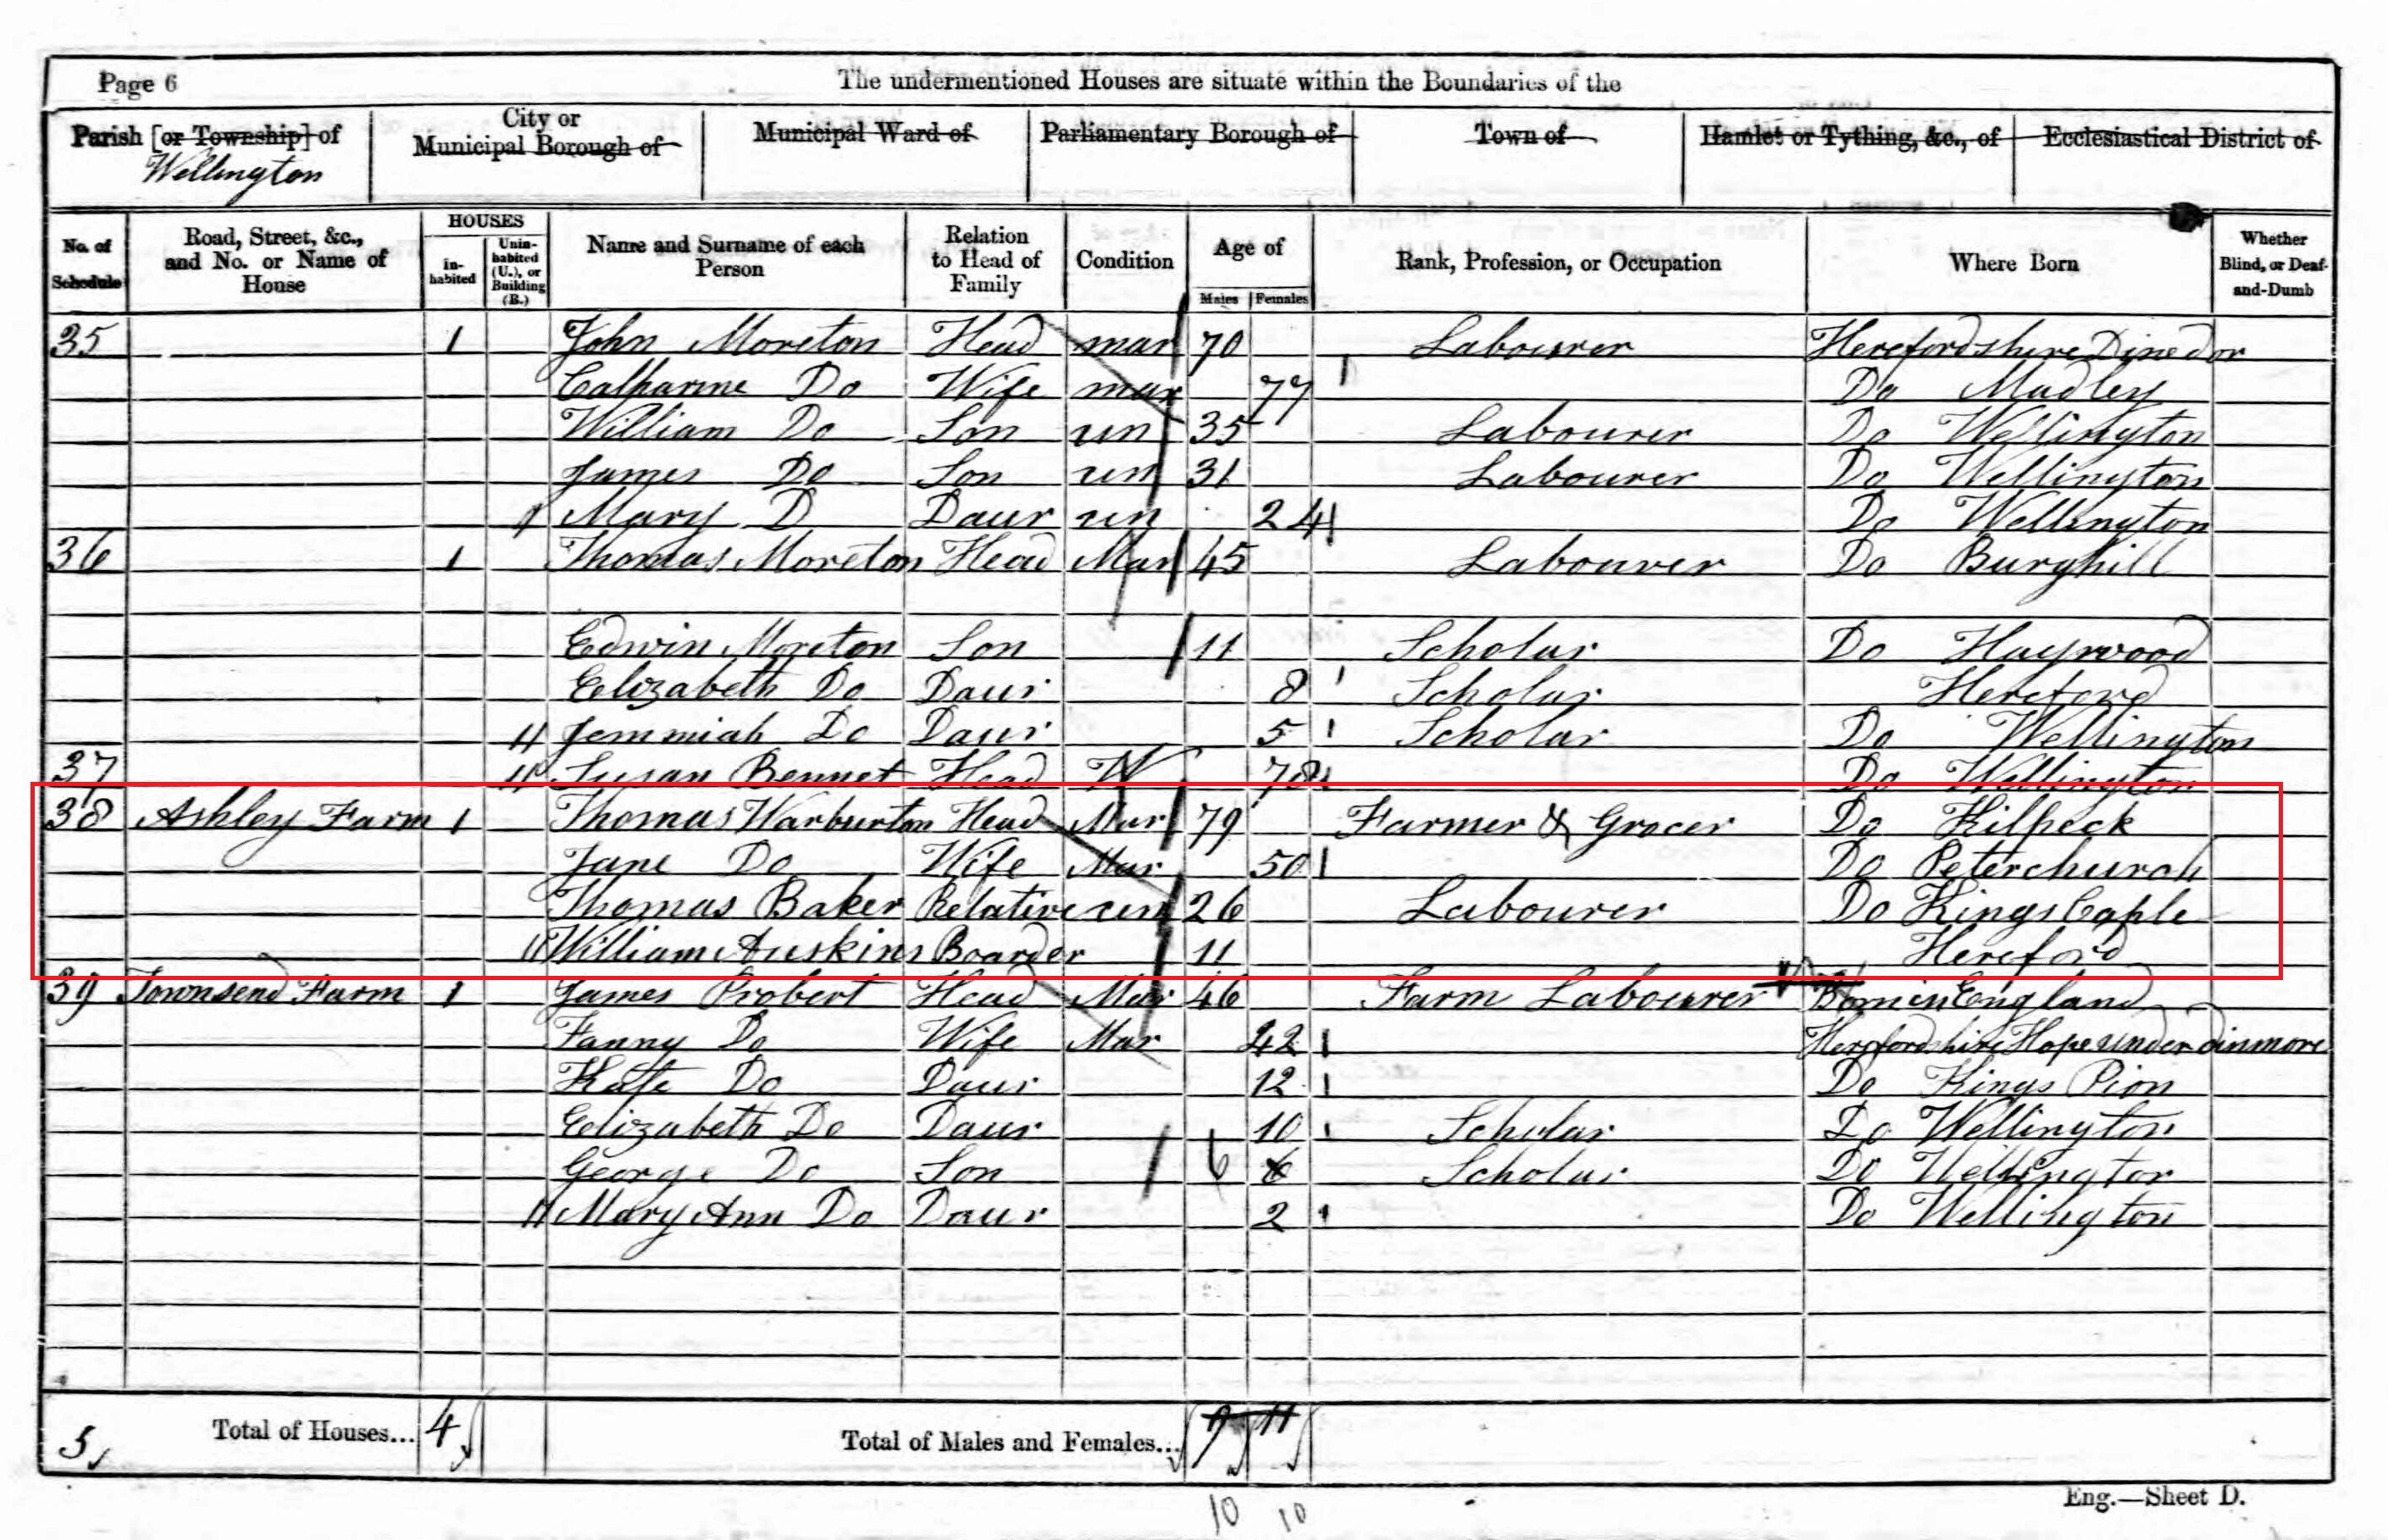 Page 6 The undermentioned Houses are situate within the Boundaries of the
Parish [or Township] of Wellington City or Municipal Borough of Municipal Ward of Parliamentary Borough of Town of Hamlet or Tything, &c., of Ecclesiastical District of
No. of Schedule Road, Street, &c., and No. or Name of House HOUSES In-habited Unin-habited (U.), or Building (B.) Name and Surname of each Person Relation to Head of Family Condition Age of Males Females Rank, Profession, or Occupation Where Born Whether Blind, or Deaf-and-Dumb
35 1 John Moreton Head mar 70 Labourer Herefordshire Dinedor
Catharine Do Wife mar 77 Do Madley
William Do Son un 35 Labourer Do Wellington
James Do Son un 31 Labourer Do Wellington
Mary D Daur un 24 Do Wellington
36 1 Thomas Moreton Head Mar 45 Labourer Do Burghill
Edwin Moreton Son 11 Scholar Do Haywood
Elizabeth Do Daur 8 Scholar Hereford
Jemmiah Do Daur 5 Scholar Do Wellington
37 Susan Bennet Head W 78 Do Wellington
38 Ashley Farm 1 Thomas Warburton Head Mar 79 Farmer & Grocer Do Kilpeck
Jane Do Wife Mar 50 Do Peterchurch
Thomas Baker Relative un 26 Labourer Do Kings Caple
William Auskins Boarder 11 Hereford
39 Townsend Farm 1 James Probert Head Mar 46 Farm Labourer Born in England
Fanny Do Wife Mar 42 Herefordshire Hope under dinmore
Kate Do Daur 12 Do Kings Pion
Elizabeth Do Daur 10 Scholar Do Wellington
George Do Son 6 6 Scholar Do Wellington
Mary Ann Do Daur 2 Do Wellington
5 Total of Houses... 4 Total of Males and Females... 9 11
10 10
Eng.—Sheet D.